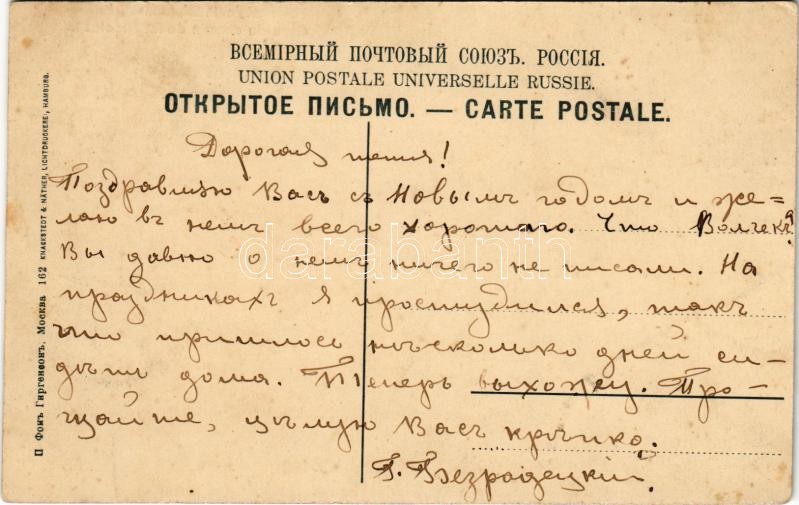 ВСЕМІРНЫЙ ПОЧТОВЫЙ СОЮЗЪ. РОССІЯ.
UNION POSTALE UNIVERSELLE RUSSIE.
ОТКРЫТОЕ ПИСЬМО. — CARTE POSTALE.
Дорогая тетя!
Поздравляю Васъ съ Новымъ годомъ и же-
лаю въ немъ всего хорошаго. Что Волчекъ?
Вы давно о немъ ничего не писали. На
праздникахъ я простудился, такъ
что пришлось нѣсколько дней си-
дѣть дома. Теперь выхожу. Про-
щайте, цѣлую Васъ крѣпко.
Г. Безродецкій.
П Фонъ Гиргенсонъ, Москва 162 KNACKSTEDT & NÄTHER, LICHTDRUCKEREI, HAMBURG.
darabanth